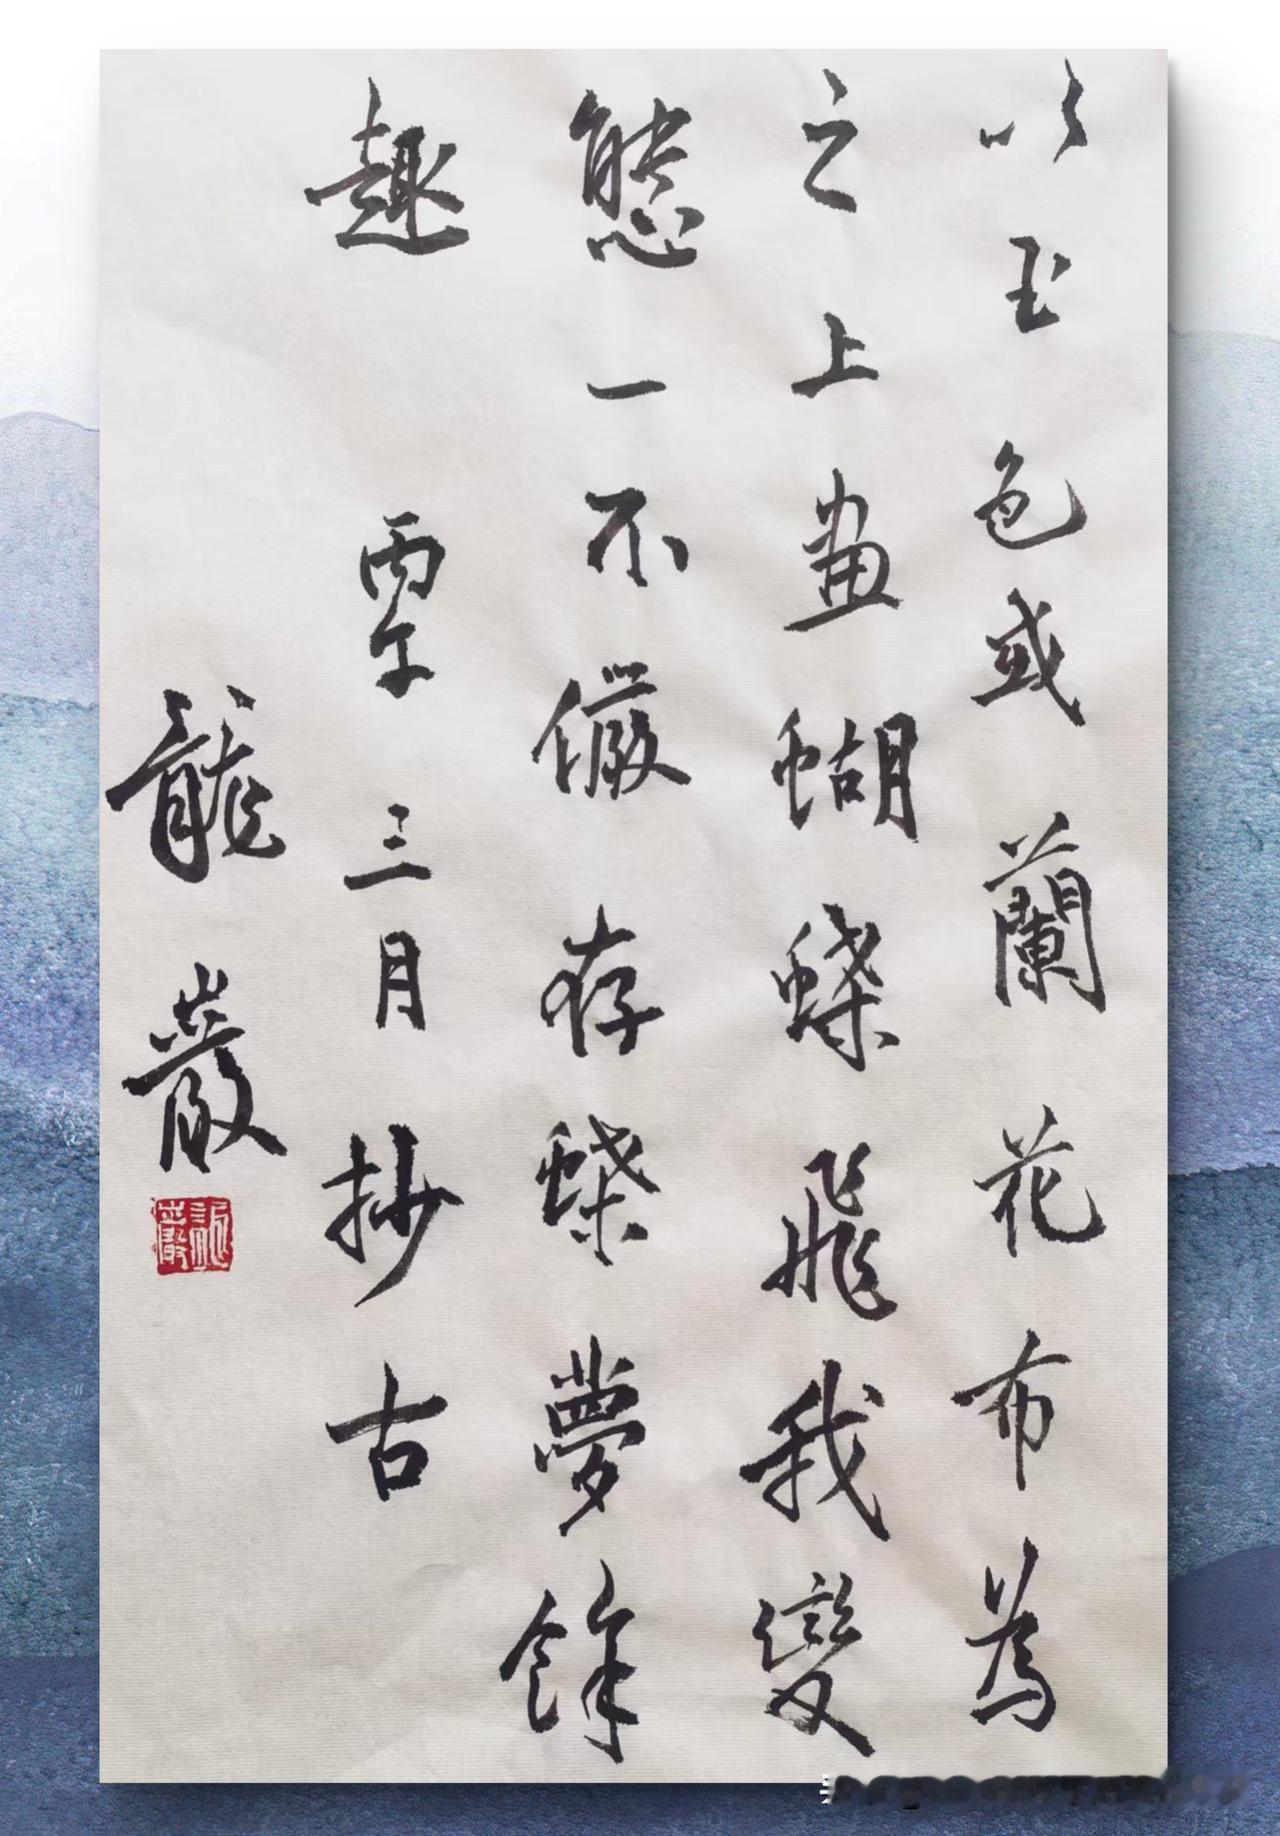 以玉色或蘭花布為
之上畫蝴蝶飛我變
態一不儼存蝶夢餘
趣 丙午三月抄古
龍巖
龍巖